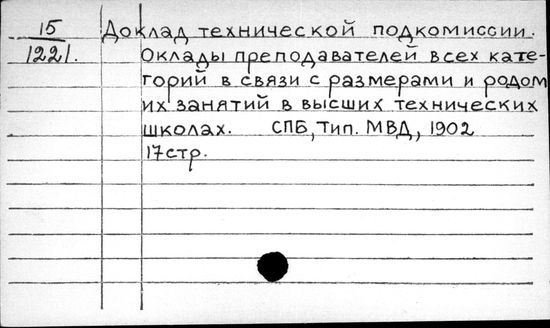 15 Доклад технической подкомиссии.
1221. Оклады преподавателей всех кате-
горий в связи с размерами и родом
их занятий в высших технических
школах. СПБ, Тип. МВД, 1902
17 стр.